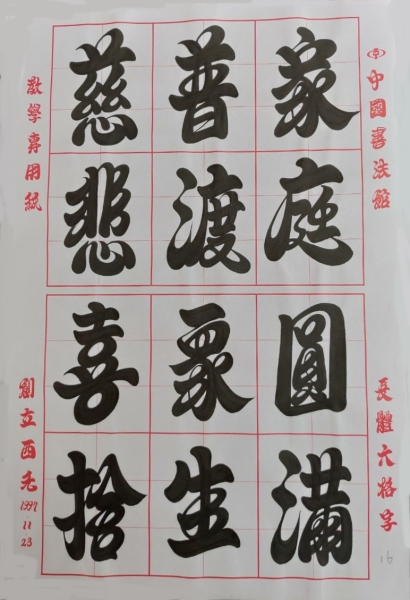 中國書法館
長體六格字
家庭圓滿
普渡眾生
慈悲喜捨
教學專用紙
創立西元
1997
11
23
16